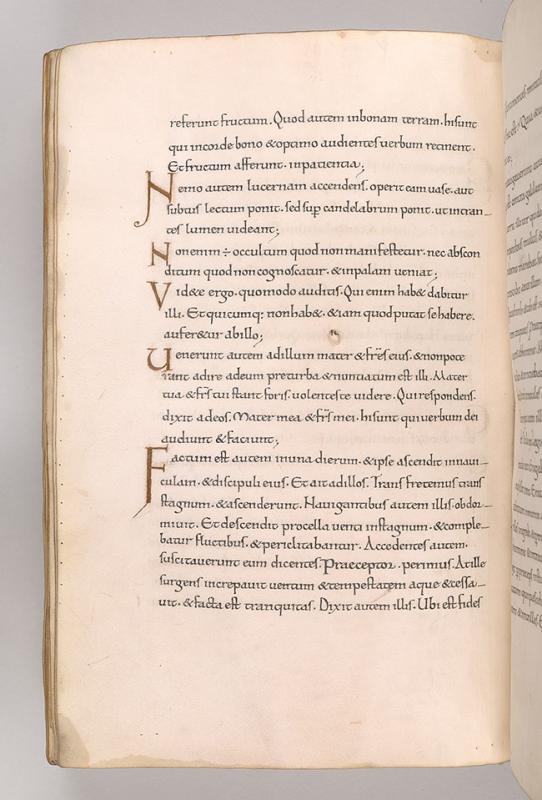 referunt fructum. Quod autem inbonam terram. hisunt
qui incorde bono & optimo audientes uerbum retinent.
Et fructum afferunt. inpatientia;
Nemo autem lucernam accendens. operit eam uase. aut
subtus lectum ponit. sed sup̄ candelabrum ponit. ut intran_
tes lumen uideant;
Nonenim ÷ occultum quod non manifestetur. nec abscon
ditum quod non cognoscatur. & inpalam ueniat;
Vid&e ergo. quomodo auditis. Qui enim hab& dabitur
illi. Et quicumq; non hab&. &iam quod putat se habere.
aufer&ur abillo;
Uenerunt autem adillum mater & fr̄s eius. & nonpote
rant adire adeum preturba & nuntiatum est illi. Mater
tua & fr̄s tui stant foris. uolentes te uidere. Qui respondens.
dixit adeos. Mater mea & fr̄s mei. hisunt qui uerbum dei
audiunt & faciunt;
Factum est autem inuna dierum. & ipse ascendit innaui_
culam. & discipuli eius. Et ait adillos. Trans fretemus trans
stagnum. & ascenderunt. Nauigantibus autem illis. obdor_
miuit. Et descendit procella uenti instagnum. & comple_
batur fluctibus. & periclitabantur. Accedentes autem.
suscitauerunt eum dicentes. Praeceptor. perimus. Atille
surgens increpauit uentum & tempestatem aque & cessa_
uit. & facta est tranquitas. Dixit autem illis. Ubi est fides